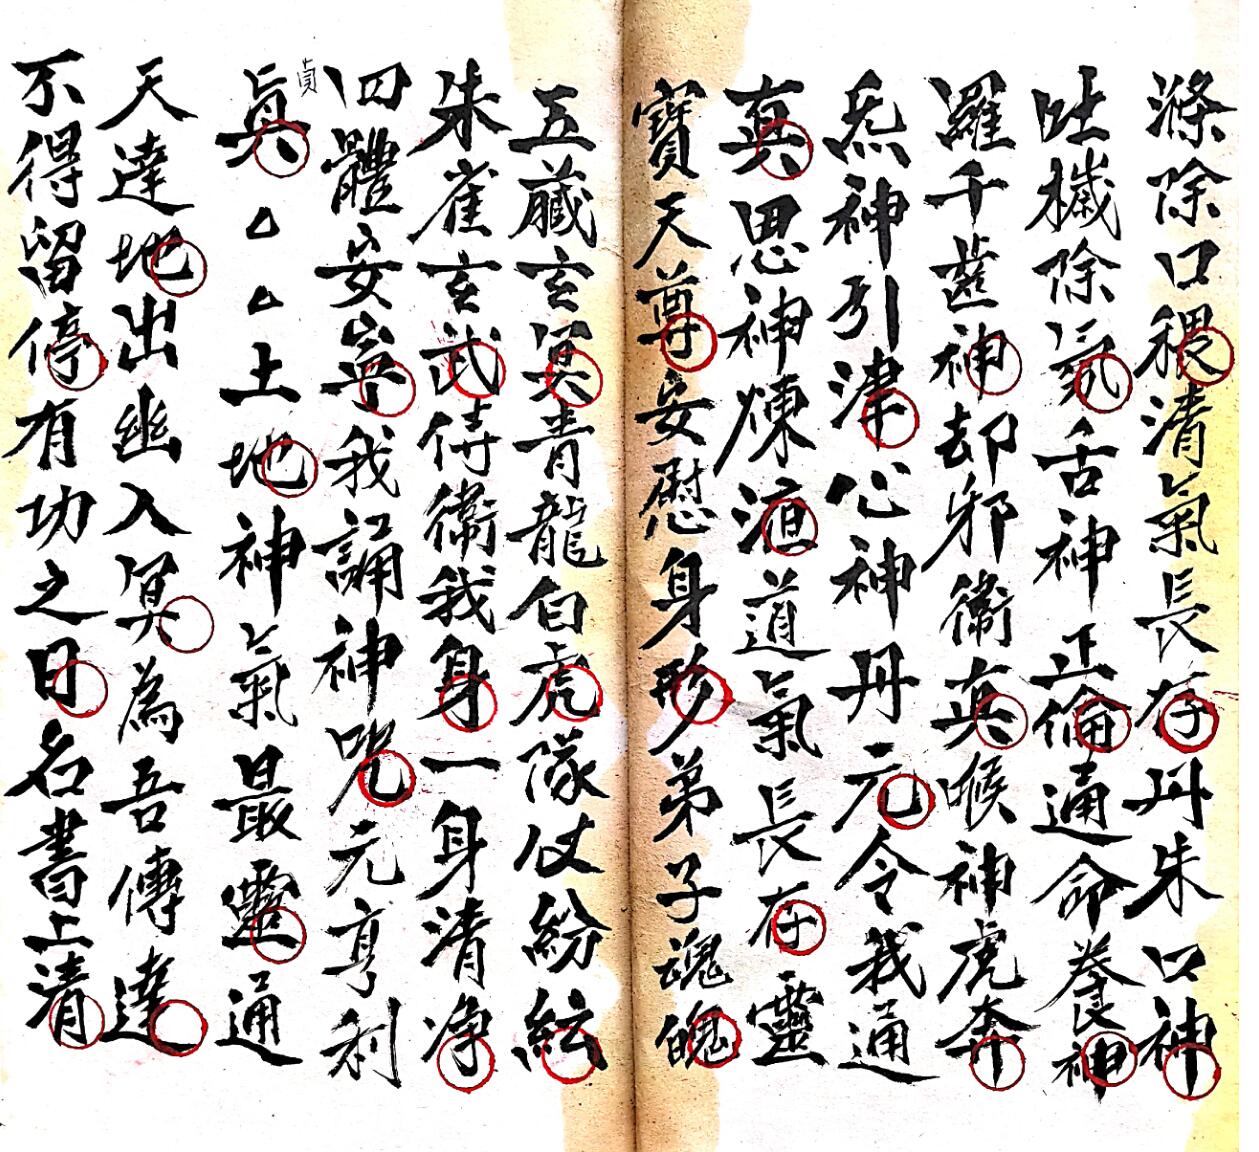 滌除口穢清氣長存丹朱口神
吐穢除氛舌神正倫通命養神
羅千齒神却邪衛真喉神虎奔
炁神引津心神丹元令我通
真思神煉液道氣長存靈
寶天尊安慰身形弟子魂魄
五藏玄冥青龍白虎隊仗紛紜
朱雀玄武侍衛我身一身清净
四體安寧我誦神咒元亨利
貞
真△△土地神氣最靈通
天達地出幽入冥為吾傳達
不得留停有功之日名書上清